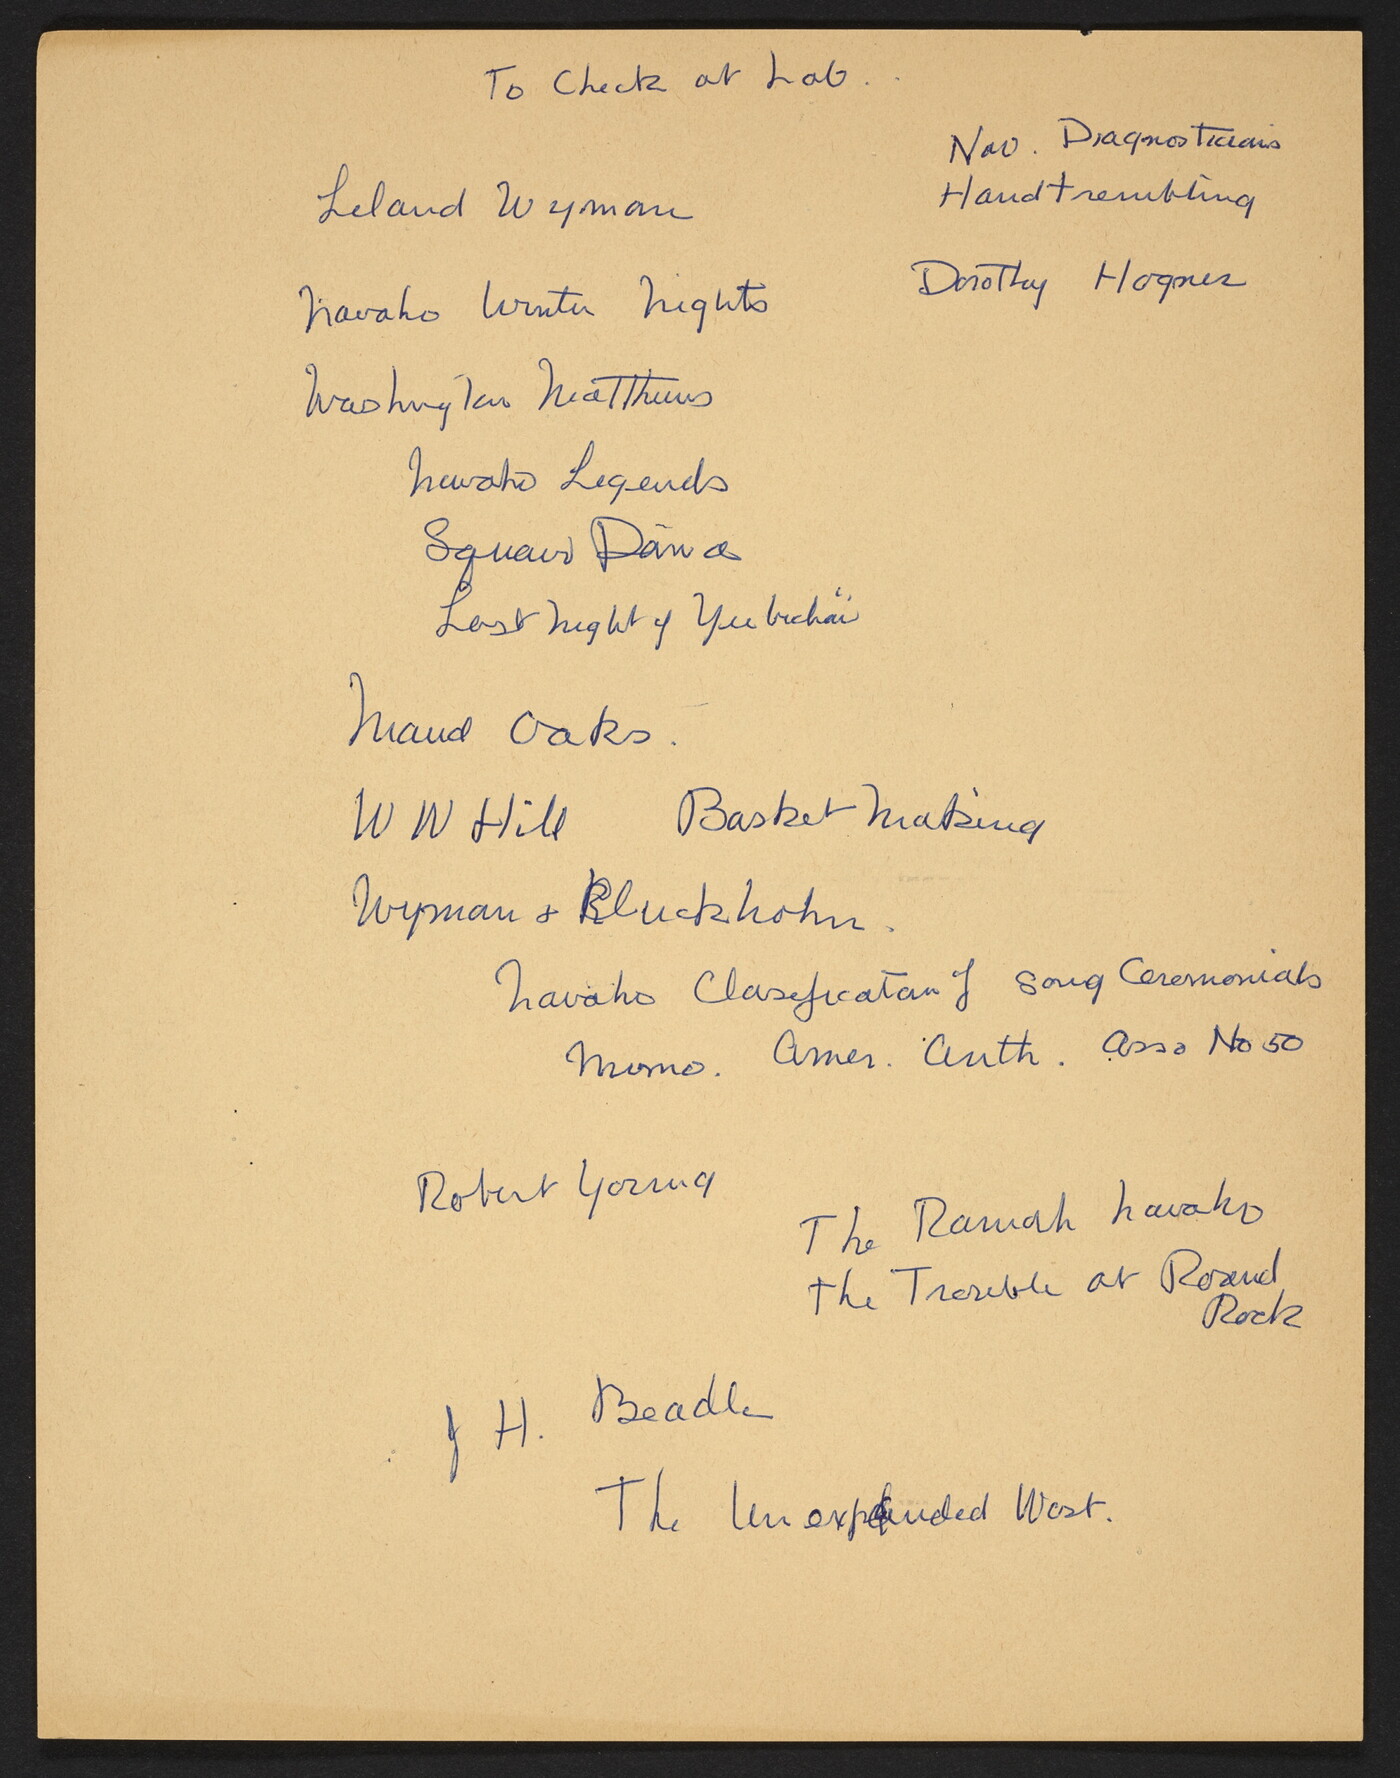 To Check at Lab.
Leland Wyman
Nav. Diagnosticians
Handtrembling
Navaho Winter Nights
Dorothy Hogner
Washington Matthews
Navaho Legends
Squaw Dance
Last Night of Yeibichai
Maud Oaks.
W W Hill Basket Making
Wyman & Kluckhohn.
Navaho Classification of Song Ceremonials
Memo. Amer. Anth. Asso No 50
Robert Young
The Ramah Navaho
The Trouble at Round
Rock
J H. Beadle
The Unexpended West.